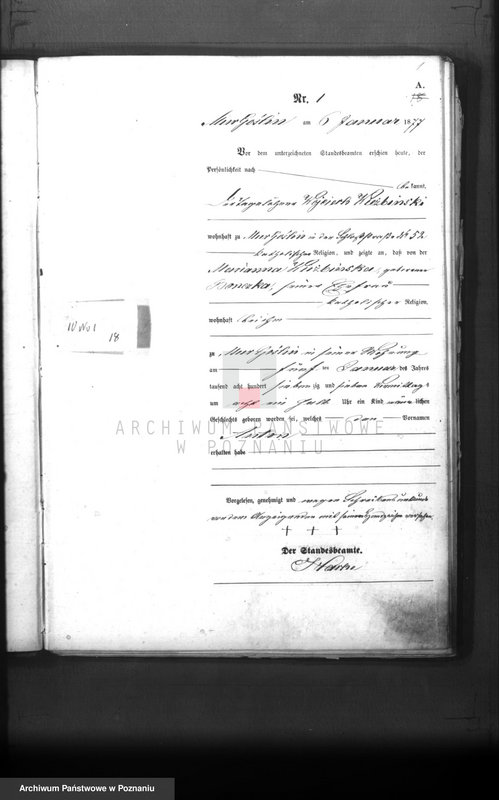 A.
Nr. 1
Mur Goslin am 6 Januar 1877
Vor dem unterzeichneten Standesbeamten erschien heute, der
Persönlichkeit nach
bekannt,
der Tagelöhner Wojciech
wohnhaft zu Mur Goslin in der Schloßstraße No 52
katholischer Religion, und zeigte an, daß von der
Marianna geborene
seiner Ehefrau
katholischer Religion,
wohnhaft bei ihm
zu Mur Goslin in seiner Wohnung
am fünf ten Januar des Jahres
tausend acht hundert siebenzig und sieben Vormittags
um acht ein halb Uhr ein Kind männlichen
Geschlechts geboren worden sei, welches den Vornamen
Anton
erhalten habe
Vorgelesen, genehmigt und wegen Schreibensunkunde
von dem Anzeigenden mit seinem Handzeichen versehen
+ + +
Der Standesbeamte.
10 No 1
18
ARCHIWUM PAŃSTWOWE
W POZNANIU
Archiwum Państwowe w Poznaniu